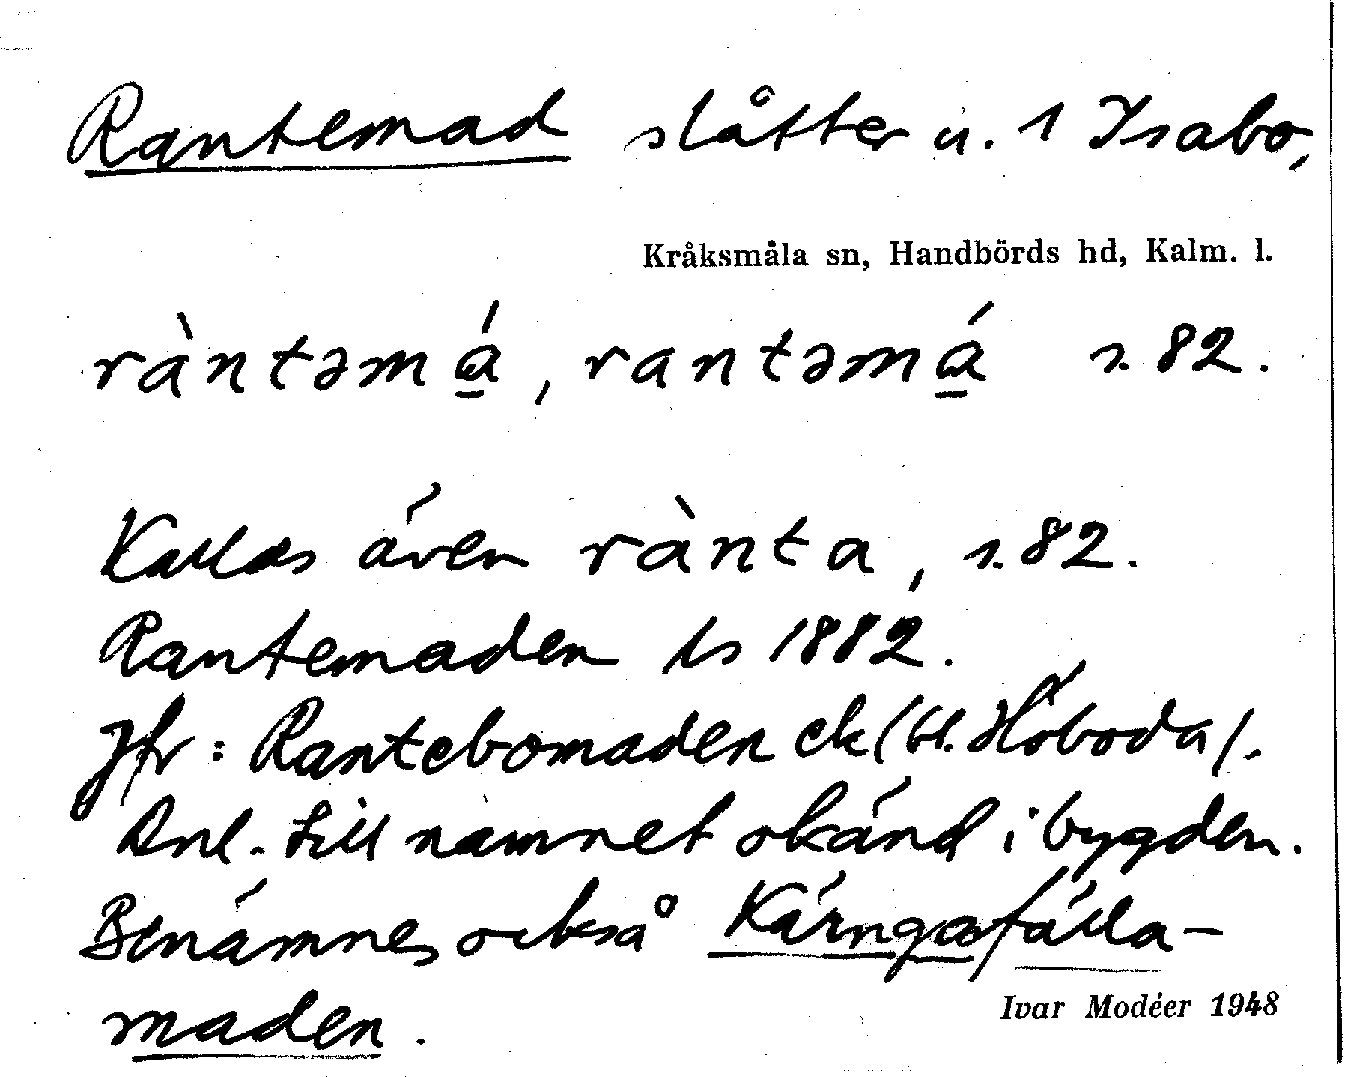 Rantemad slåtter u. 1 Ysabo,
Kråksmåla sn, Handbörds hd, Kalm. l.
ràntəmá̱, rantəmá̱ s. 82.
Kallas även rànta, s. 82.
Rantemaden ls 1882.
Jfr: Rantebomaden ek (bl. Höboda).
Anl. till namnet okänd i bygden.
Benämnes också Kärngafälla-
maden.
Ivar Modéer 1948